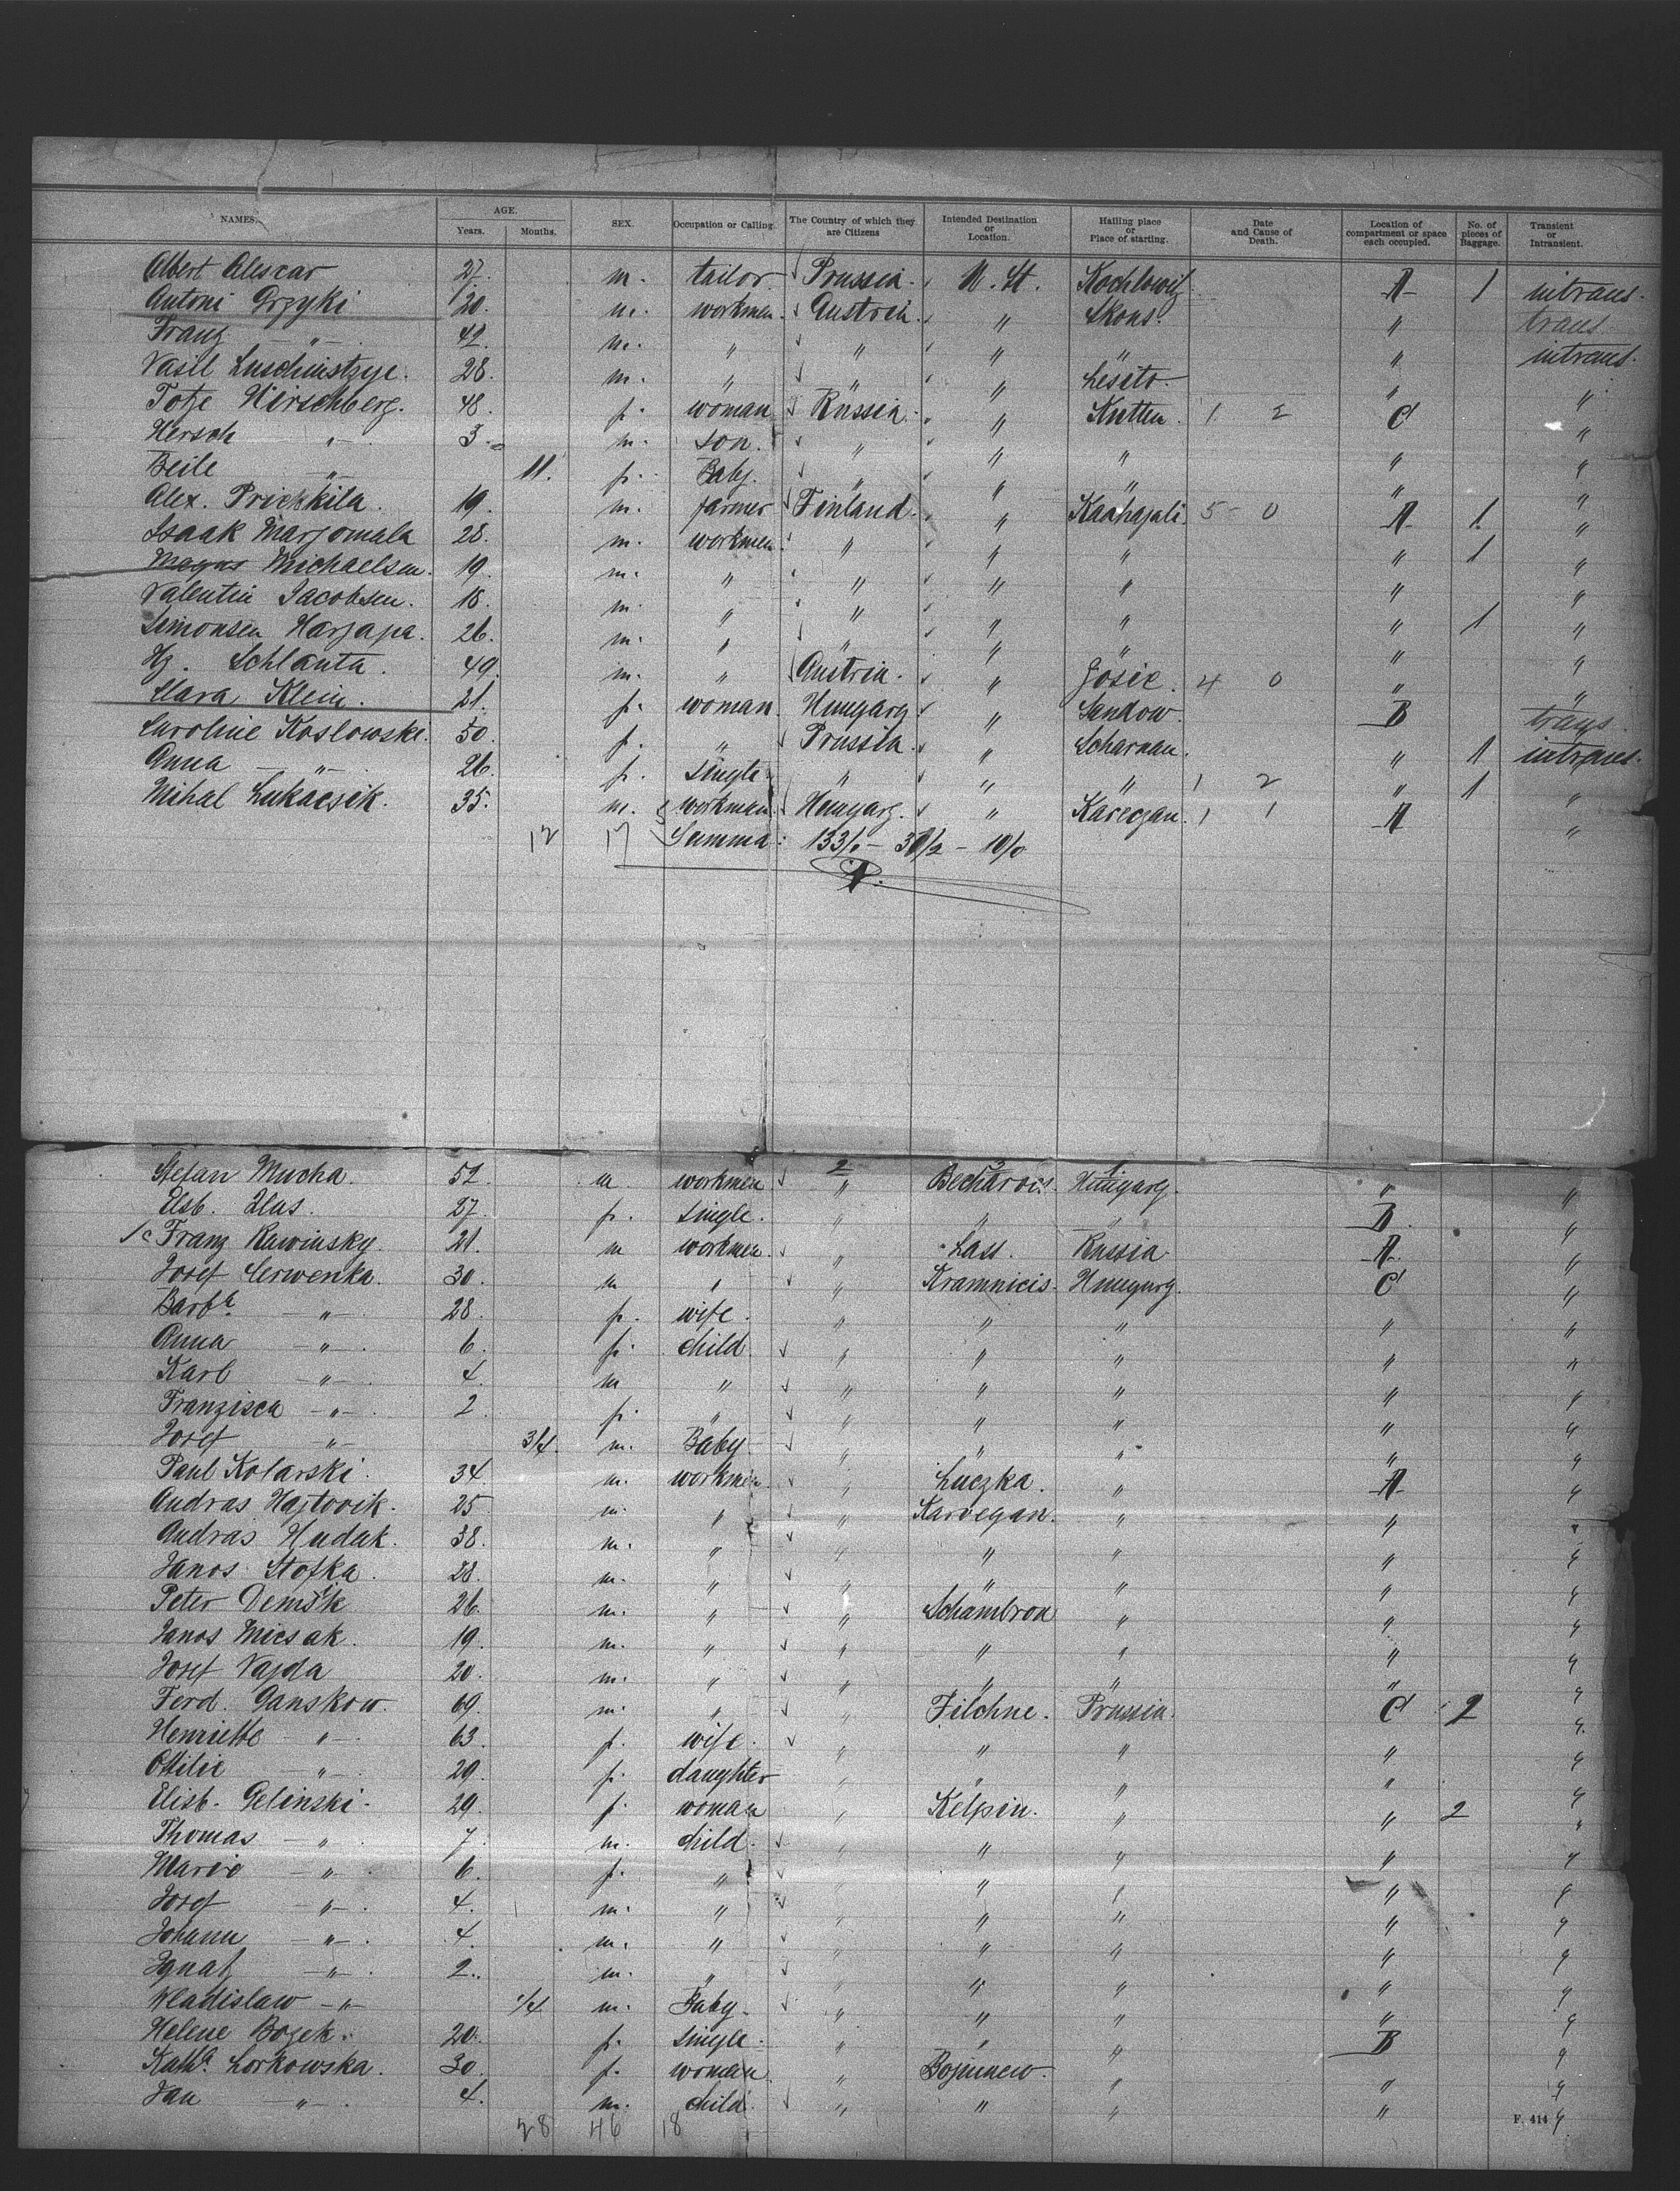 NAMES. AGE. Years. Months. SEX. Occupation or Calling. The Country of which they are Citizens Intended Destination or Location. Hailing place or Place of starting. Date and Cause of Death. Location of compartment or space each occupied. No. of pieces of Baggage. Transient or Intransient.
Albert Alescar 27. m. tailor Prussia. U. St. A 1 intrans.
Antoni Grzyki 20. m. workmen. Austria. " Skons. " trans.
Franz -"- 42. m. " " " " " intrans.
Vasil 28. m. " " " Lesito. " "
Totje Hirschberg. 48. f. woman Russia. " Kutten. 1 2 C "
Hersch " 3. m. son. " " " " "
Beile -"- 11. f. Baby. " " " " "
Alex. 19. m. farmer Finland. " 5 - 0 A 1 "
Isaak Marjomala 28. m. workmen. " " " " 1 "
Magnus Michaelsen. 19. m. " " " " " "
Valentin Jacobsen. 18. m. " " " " " 1 "
Simonsen Harjapa. 26. m. " " " " " "
Hz. Schlanta. 49. m. " Austria. " Josie. 4 0 " "
Clara Klein. 21. f. woman. Hungary. " Sandow. B trans.
Caroline Koslowske. 50. f. " Prussia. " Scharnau. " 1 intrans.
Anna -"-. 26. f. single. " " " 1 2 " 1 "
Mihal Lukacsik. 35. m. workmen. Hungary. " 1 1 A "
12 17 Summa: 133/0 - 30/2 - 10/0
Stefan Mucha. 52. m workmen " Hungary. " "
Elsb. Ilus. 27. f. single. " " " B. "
1c Franz Rawinsky. 21. m workmen. " Lass. Russia A "
Josef Cerwenka. 30. m " " Kramnicis. Hungary. C "
Barba. -"- 28. f. wife. " " " " "
Anna -"-. 6. f. child. " " " " "
Karl -"-. 4. m " " " " " "
Franzisca -"-. 2. f. " " " " " "
Josef -"- 3/4. m. Baby. " " " " "
Paul Kolarski. 34 m. workmen. " Luczka. " A "
Andras Hajtovik. 25 m. " " Karvegan. " " "
Andras Hudak. 38. m. " " " " " "
Janos Stofka. 28. m. " " " " " "
Peter 26. m. " " Schambron " " "
Janos Micsak. 19. m. " " " " " "
Josef Vajda 20. m. " " " " " "
Ferd. Ganskow. 69. m. " " Filehne. Prussia. C 2 "
Henriette -"-. 63. f. wife. " " " " "
Ottilie -"-. 29. f. daughter " " " " "
Elisb. Gelinski. 29. f. woman " Kelpin. " " 2 "
Thomas -"-. 7. m. child. " " " " "
Marie -"-. 6. f. " " " " " "
Josef -"-. 4. m. " " " " " "
Johann -"-. 4. m. " " " " " "
Ignatz -"-. 2. m. " " " " " "
Wladislaw -"- 1/4 m. Baby. " " " " "
Helene Bozek. 20. f. single. " " " B "
Katha. Lorkowska. 30. f. woman. " " " "
Jan -"-. 4. m. child " " " " "
28 46 18 F. 414